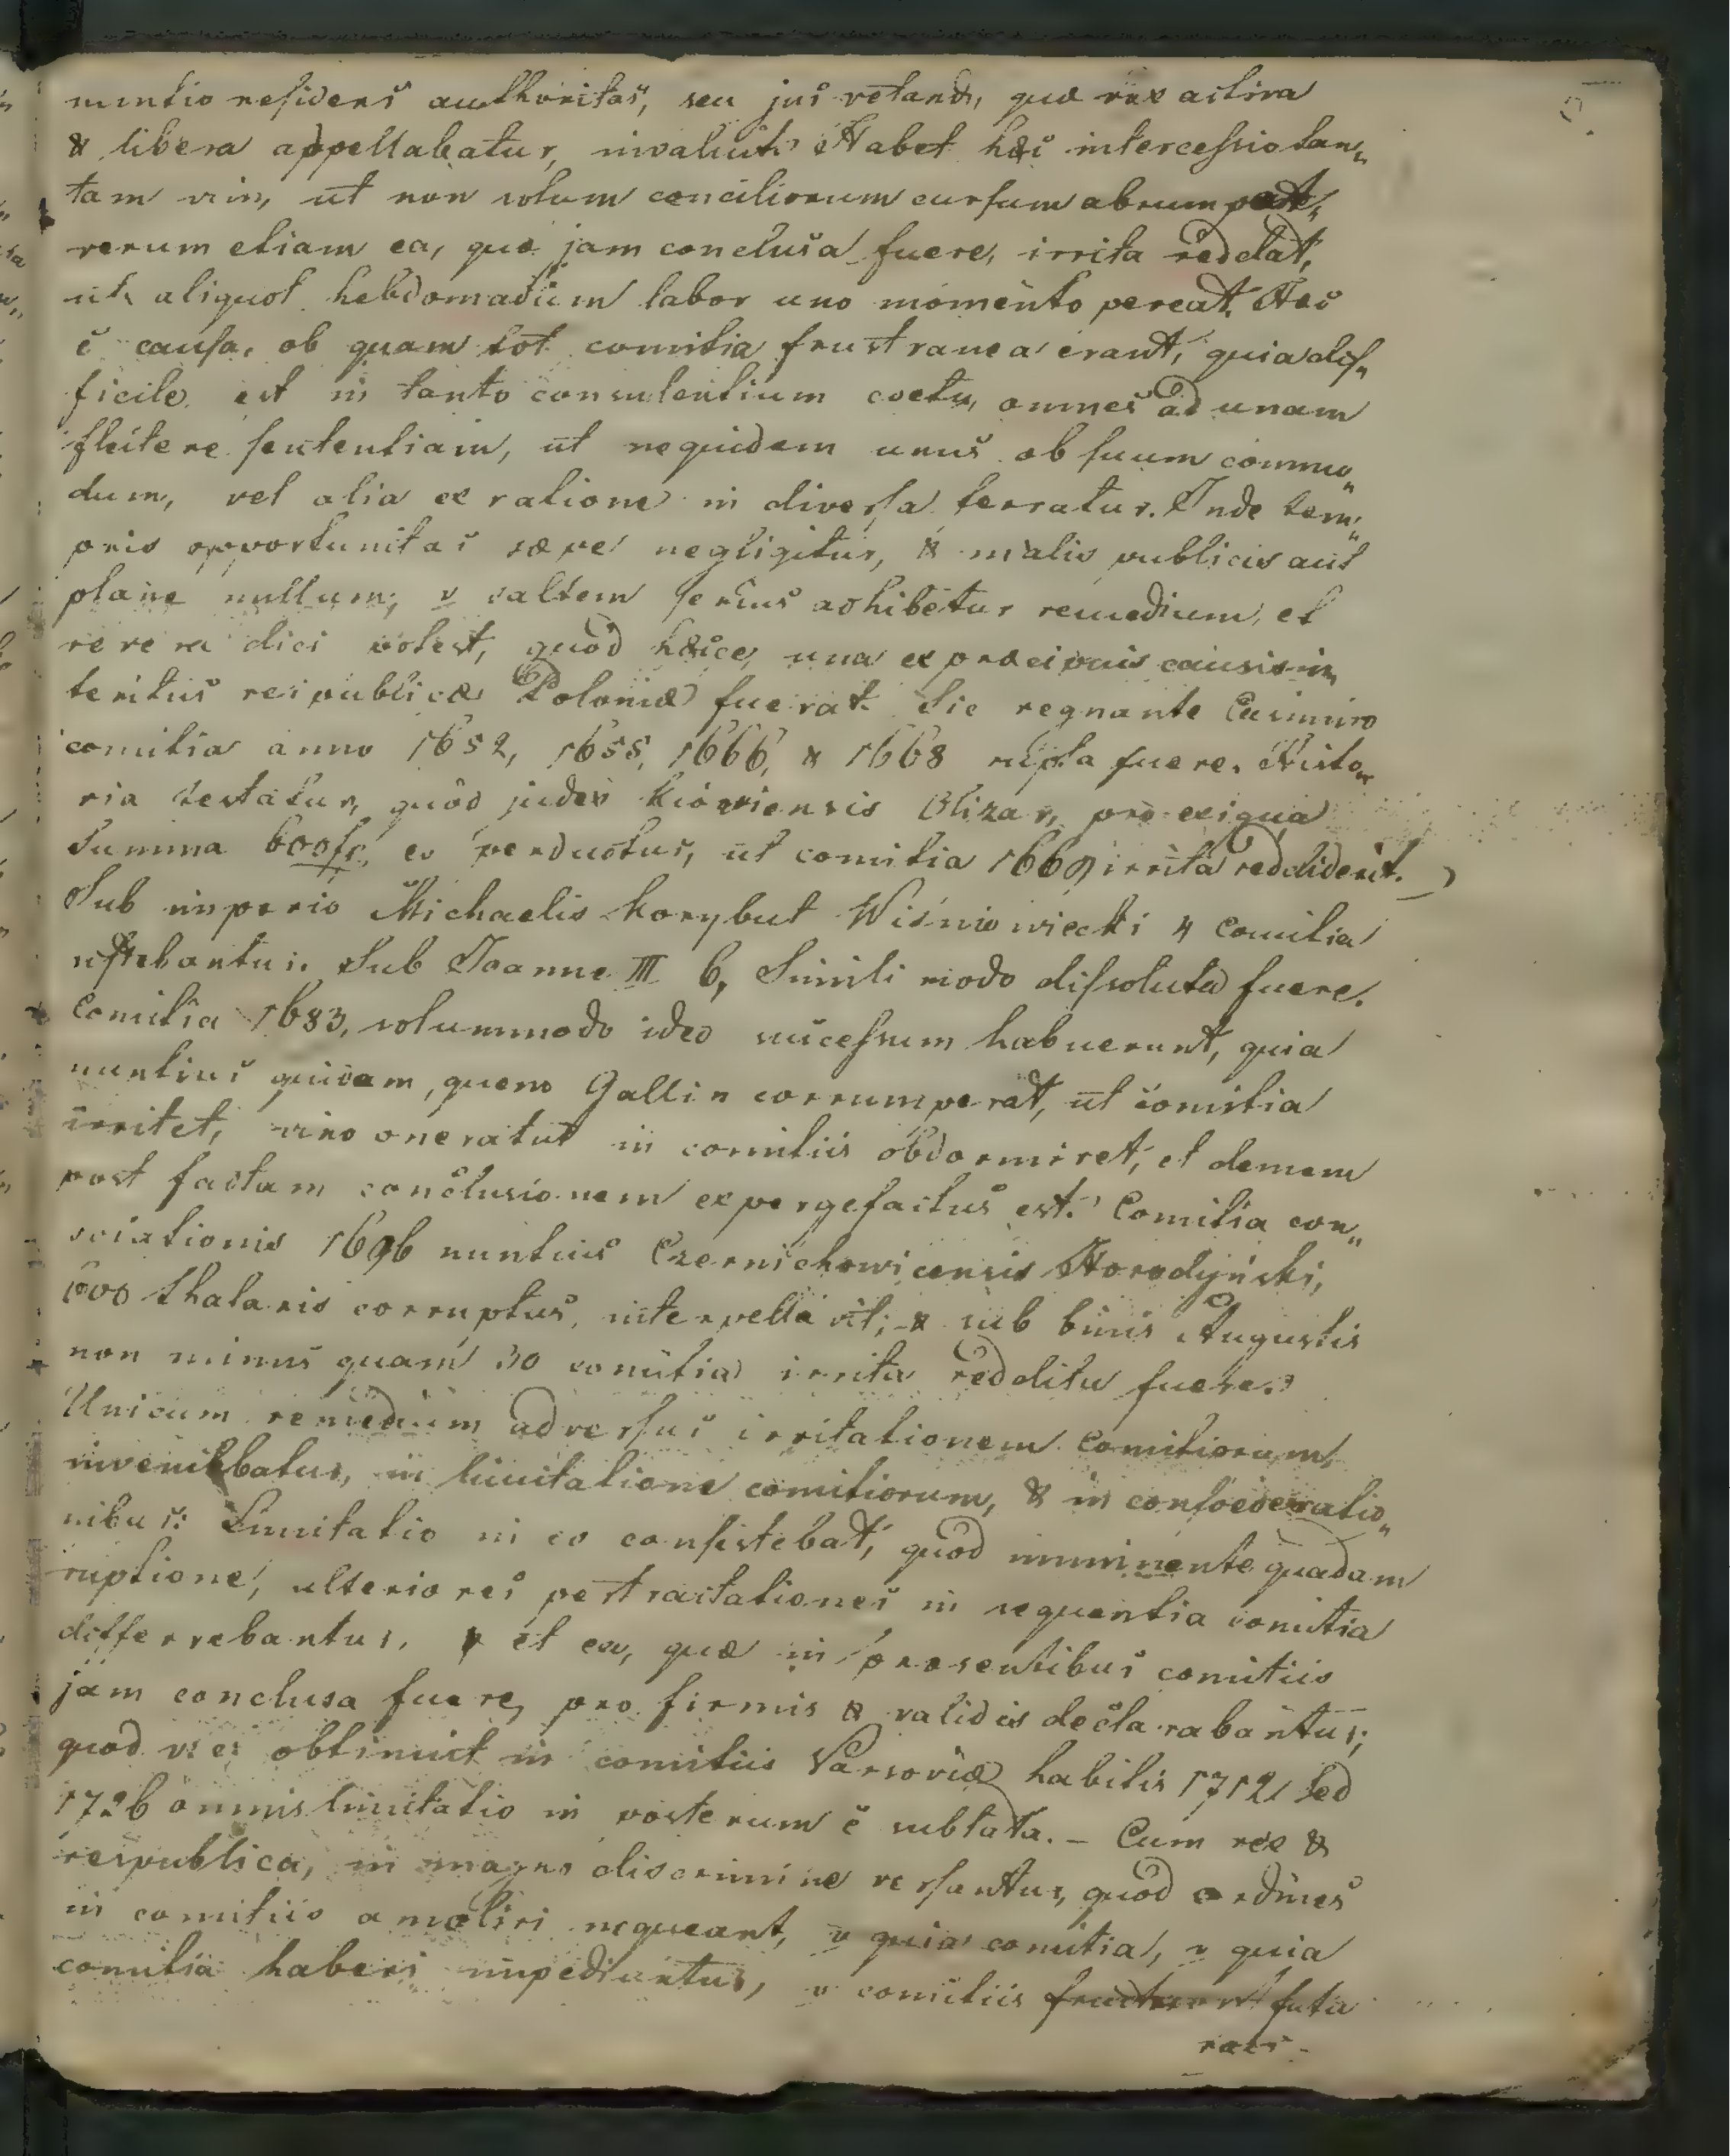 nuntio residens authoritas, seu jus vetandi, quæ vox activa
& libera appellabatur, invaluit. Habet hæc intercessio tan„
tam vim, ut non solum conciliorum cursum abrumpat„
verum etiam ea, quæ jam conclusa fuere, irrita reddat,
ut aliquot hebdomadum labor uno momento pereat. Hæc
ē causa, ob quam tot comitia frustranea erant, quia dif„
ficile est in tanto consulentium coetu, omnes ad unam
flectere sententiam, ut nequidem unus ob suum commo„
dum, vel alia ex ratione in diversa ferratur. Inde tem„
poris opportunitas sæpe negligitur, & malis publicis aut
plane nullum, v saltem serius adhibetur remedium, et
revera dici potest, quod hæcce una ex præcipuis causis in„
teritus reipublicæ Poloniæ fuerat. Sic regnante Casimiro
comitia anno 1652, 1655, 1666, & 1668 rupta fuere. Histo„
ria testatur, quod judex Kioviensis Olizar, pro exigua
summa 600 fr, eo perductus, ut comitia 1669 irrita reddiderit.
Sub imperio Michaelis Korybut Wiśniowiecki 4 Comitia
Sub Joanne III 6, Simili modo dissoluta fuere.
Comitia 1683, solummodo ideo successum habuerunt, quia
nuntius quidam, quem Gallia corrumperat, ut comitia
irritet, vino oneratus in comitiis obdormiret, et demum
post factam conclusionem expergefactus est. Comitia con„
vocationis 1696 nuntius Czernichowicensis Horodyński,
thalaris corruptus, intervellavit; & sub binis Augustis
non minus quam 30 comitia irrita reddita fuere.
Unicum remedium adversus irritationem comitiorum,
inveniebatur, in limitatione comitiorum, & in confoederatio„
nibus. Limitatio in eo consistebat, quod imminente quadam
ruptione, ulteriores pertractationes in sequentia comitia
differrebantur, et ea, quæ in præsentibus comitiis
jam conclusa fuere, pro firmis & validis declarabantur;
quod obtinuit in comitiis Varsoviæ habitis 1712, sed
1726 omnis limitatio in posterum ē sublata. – Cum rex &
respublica, in magno discrimine versantur, quod ordines
in comitiis amoliri nequeant, v quia comitia, v quia
comitia haberi impediuntur, v comitiis futu